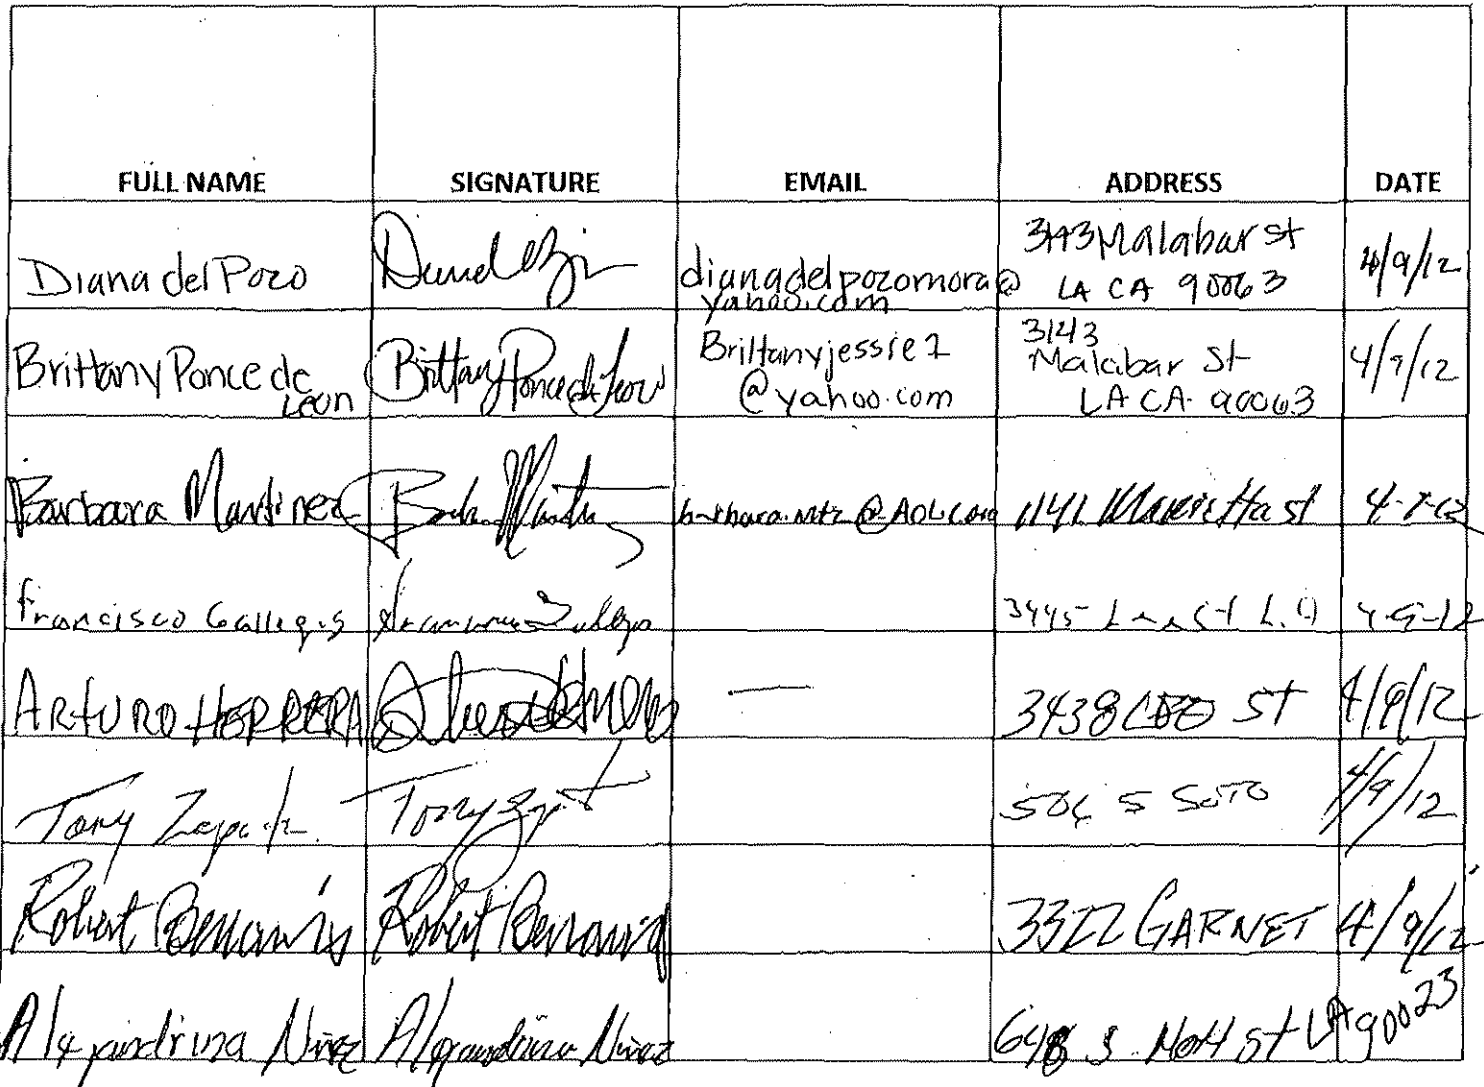 FULL NAME SIGNATURE EMAIL ADDRESS DATE
Diana del Pozo dianadelpozomora@ yahoo.com 3143 Malabar st LA CA 90063 4/9/12
Brittany Ponce de Leon Brittany Ponce de Leon Brittanyjessie1 @yahoo.com 3143 Malabar St LA CA 90063 4/9/12
Barbara Martinez barbara.mtz@AOL.com 1141 Marietta st
Francisco Gallegos 3445 L.A 4-9-12
ARTURO HERRERA — 3438 LEE ST 4/9/12
Tony Zapata Tony 5 SOTO 4/9/12
Robert Robert 3322 GARNET 4/9/12
Alejandrina Nuñez Alejandrina Nuñez 648 S. Mott st LA 90023